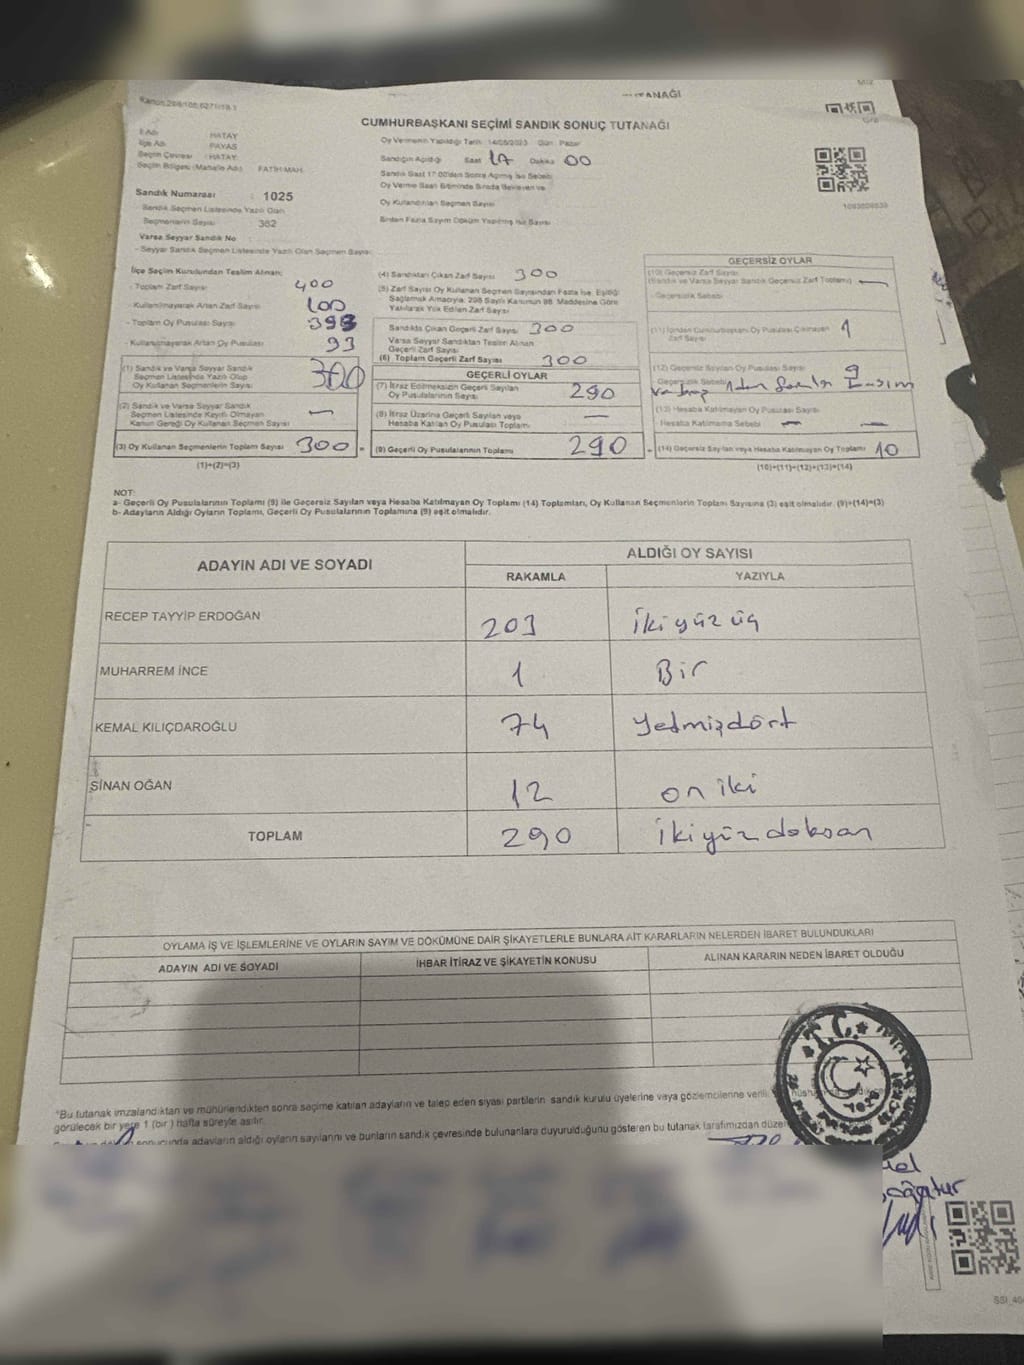 TANAĞI
CUMHURBAŞKANI SEÇİMİ SANDIK SONUÇ TUTANAĞI
İl Adı HATAY
İlçe Adı PAYAS
Seçim Çevresi : HATAY
Seçim Bölgesi (Mahalle Adı) FATİH MAH.
Sandık Numarası : 1025
Sandık Seçmen Listesinde Yazılı Olan
Seçmenlerin Sayısı 382
Varsa Seyyar Sandık No
- Seyyar Sandık Seçmen Listesinde Yazılı Olan Seçmen Sayısı:
Oy Vermenin Yapıldığı Tarih: 14/05/2023 Gün: Pazar
Sandığın Açıldığı Saat 17 Dakika 00
Sandık Saat 17:00'den Sonra Açılmış İse Sebebi
Oy Verme Saati Bitiminde Sırada Bekleyen ve
Oy Kullandırılan Seçmen Sayısı
Birden Fazla Sayım Döküm Yapılmış İse Sayısı
İlçe Seçim Kurulundan Teslim Alınan;
- Toplam Zarf Sayısı 400
- Kullanılmayarak Artan Zarf Sayısı 100
- Toplam Oy Pusulası Sayısı 393
- Kullanılmayarak Artan Oy Pusulası 93
(1) Sandık ve Varsa Seyyar Sandık
Seçmen Listesinde Yazılı Olup
Oy Kullanan Seçmenlerin Sayısı 300
(2) Sandık ve Varsa Seyyar Sandık
Seçmen Listesinde Kayıtlı Olmayan
Kanun Gereği Oy Kullanan Seçmen Sayısı —
(3) Oy Kullanan Seçmenlerin Toplam Sayısı 300 =
(1)+(2)=(3)
(4) Sandıktan Çıkan Zarf Sayısı 300
(5) Zarf Sayısı Oy Kullanan Seçmen Sayısından Fazla İse, Eşitliği
Sağlamak Amacıyla, 298 Sayılı Kanunun 98. Maddesine Göre
Yakılarak Yok Edilen Zarf Sayısı
Sandıkta Çıkan Geçerli Zarf Sayısı 300
Varsa Seyyar Sandıktan Teslim Alınan
Geçerli Zarf Sayısı
(6) Toplam Geçerli Zarf Sayısı 300
GEÇERLİ OYLAR
(7) İtiraz Edilmeksizin Geçerli Sayılan
Oy Pusulalarının Sayısı 290
(8) İtiraz Üzerine Geçerli Sayılan veya
Hesaba Katılan Oy Pusulası Toplamı —
(9) Geçerli Oy Pusulalarının Toplamı 290
GEÇERSİZ OYLAR
(10) Geçersiz Zarf Sayısı
(Sandık ve Varsa Seyyar Sandık Geçersiz Zarf Toplamı) —
- Geçersizlik Sebebi
(11) İçinden Cumhurbaşkanı Oy Pusulası Çıkmayan
Zarf Sayısı 1
(12) Geçersiz Sayılan Oy Pusulası Sayısı 9
Geçersizlik Sebebi
(13) Hesaba Katılmayan Oy Pusulası Sayısı
- Hesaba Katılmama Sebebi — —
(14) Geçersiz Sayılan veya Hesaba Katılmayan Oy Toplamı 10
(10)+(11)+(12)+(13)=(14)
NOT:
a- Geçerli Oy Pusulalarının Toplamı (9) ile Geçersiz Sayılan veya Hesaba Katılmayan Oy Toplamı (14) Toplamları, Oy Kullanan Seçmenlerin Toplam Sayısına (3) eşit olmalıdır. (9)+(14)=(3)
b- Adayların Aldığı Oyların Toplamı, Geçerli Oy Pusulalarının Toplamına (9) eşit olmalıdır.
ADAYIN ADI VE SOYADI ALDIĞI OY SAYISI
RAKAMLA YAZIYLA
RECEP TAYYİP ERDOĞAN 203 ikiyüz üç
MUHARREM İNCE 1 Bir
KEMAL KILIÇDAROĞLU 74 Yetmişdört
SİNAN OĞAN 12 on iki
TOPLAM 290 ikiyüz doksan
OYLAMA İŞ VE İŞLEMLERİNE VE OYLARIN SAYIM VE DÖKÜMÜNE DAİR ŞİKAYETLERLE BUNLARA AİT KARARLARIN NELERDEN İBARET BULUNDUKLARI
ADAYIN ADI VE SOYADI İHBAR İTİRAZ VE ŞİKAYETİN KONUSU ALINAN KARARIN NEDEN İBARET OLDUĞU
T.C.
*Bu tutanak imzalandıktan ve mühürlendikten sonra seçime katılan adayların ve talep eden siyasi partilerin sandık kurulu üyelerine veya gözlemcilerine verilir.
görülecek bir yere 1 (bir) hafta süreyle asılır.
sonucunda adayların aldığı oyların sayılarını ve bunların sandık çevresinde bulunanlara duyurulduğunu gösteren bu tutanak tarafımızdan